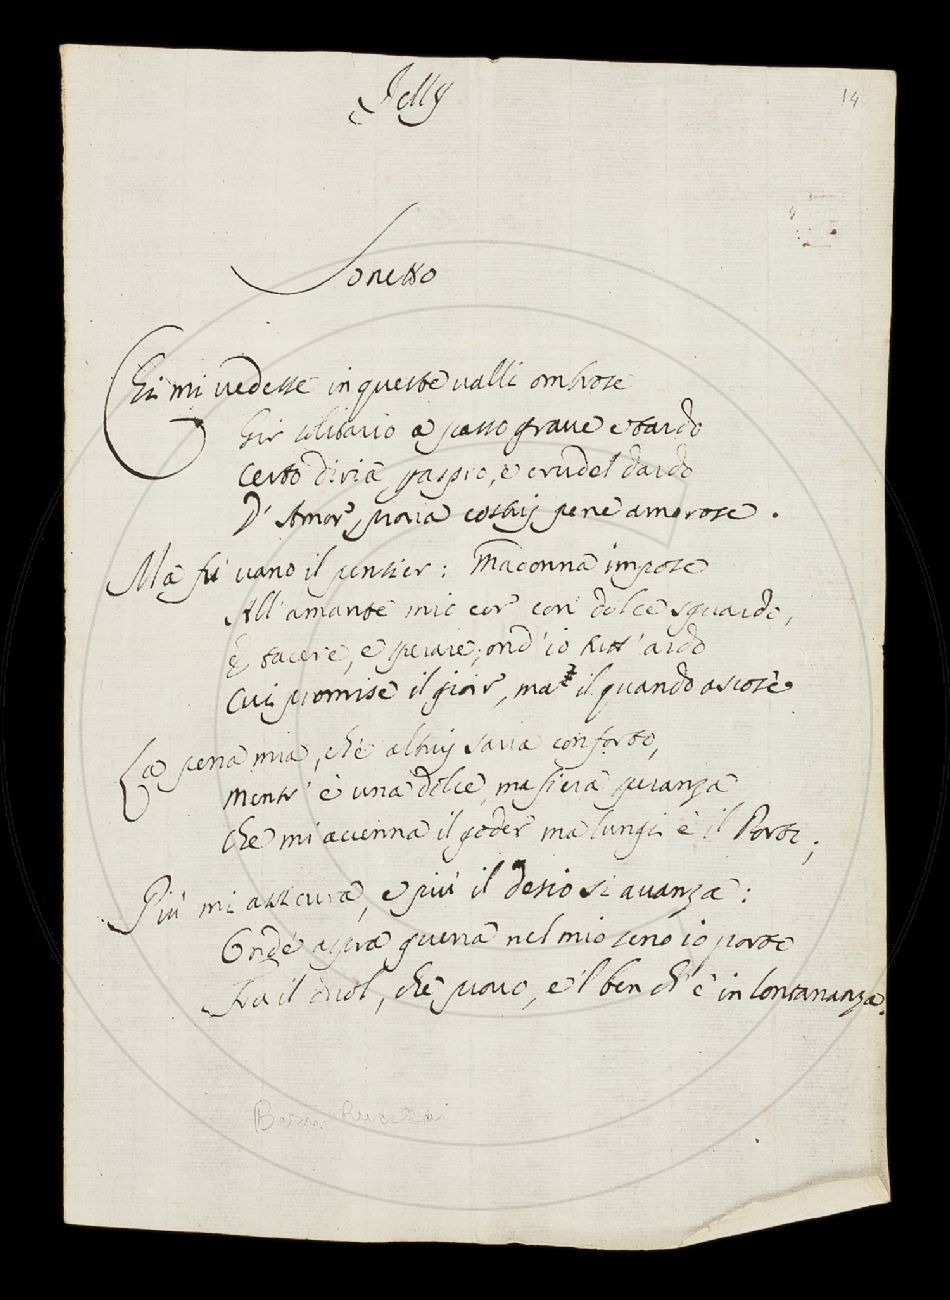 Jelly
14
Sonetto
Chi mi vedesse in queste ualli ombrose
Gir solitario a passo graue e tardo
Certo diria, l'aspro, e crudel dardo
D'Amor, proua costui pene amorose.
Ma fù uano il pensier: Madonna impose
All'amante mio cor con dolce sguardo,
E tacere, e sperare; ond'io tutt'ardo
Cui promise il gioir, ma il quando ascose
La pena mia, ch'è altrui saria conforto,
Mentr'è una dolce, ma fiera speranza
Che mi accenna il goder ma lungi è il Porto;
Più mi assicura, e più il desio si auanza:
Onde aspra guerra nel mio seno io porto
Fra il duol, che prouo, e'l ben ch'è in lontananza.